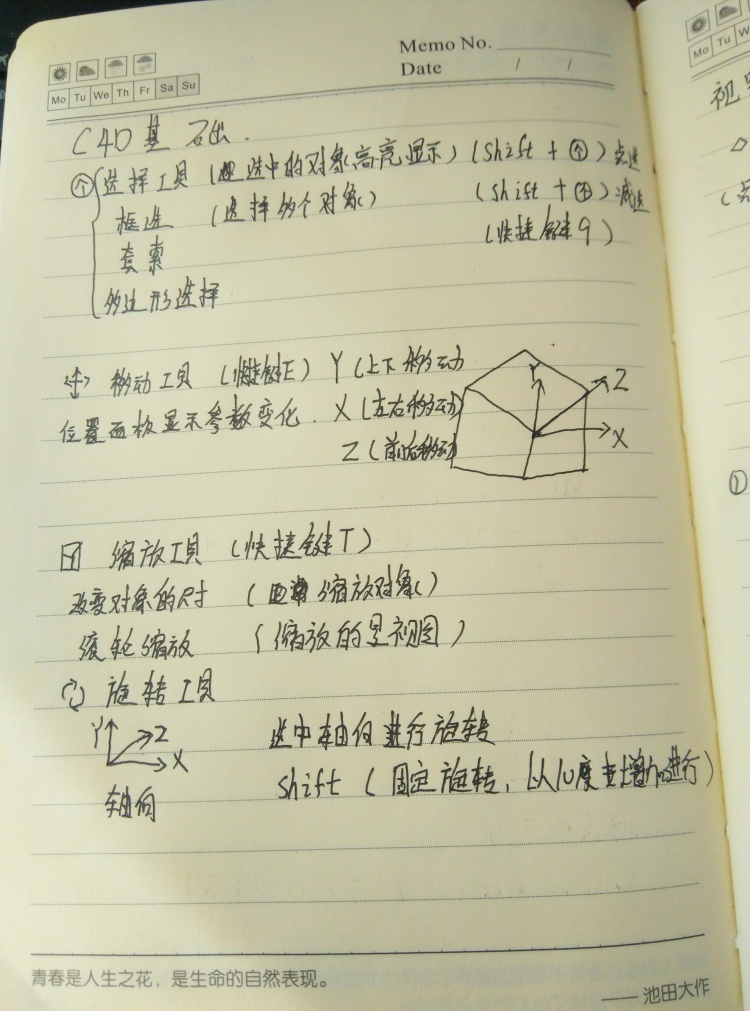 Memo No.
Date / /
Mo Tu We Th Fr Sa Su
C4D基础.
选择工具 (选中的对象高亮显示) (shift + 个) 点选
框选 (选择多个对象) (shift + 个) 减选
套索 (快捷键9)
多边形选择
移动工具 (快捷键E) Y (上下移动
位置面板显示参数变化. X (左右移动)
Z (前后移动)
Y
Z
X
缩放工具 (快捷键T)
改变对象的尺寸 (缩放对象)
滚轮缩放 (缩放的是视图)
旋转工具
Y Z X 选中轴向进行旋转
轴向 shift (固定旋转, 以10度增加进行)
青春是人生之花，是生命的自然表现。
—— 池田大作
Mo Tu
视
①